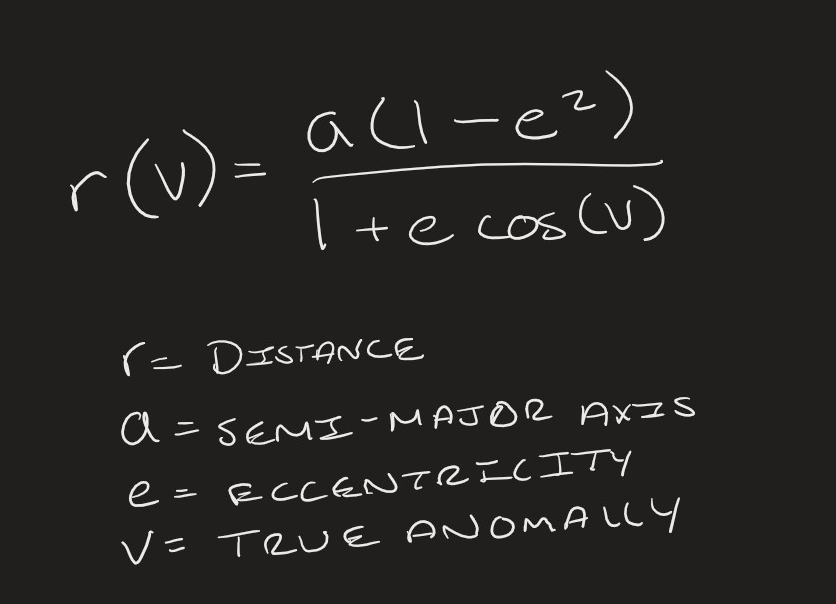 r(v) = a(1-e²)
1+e cos(v)
r = DISTANCE
a = SEMI-MAJOR AXIS
e = ECCENTRICITY
v = TRUE ANOMALLY